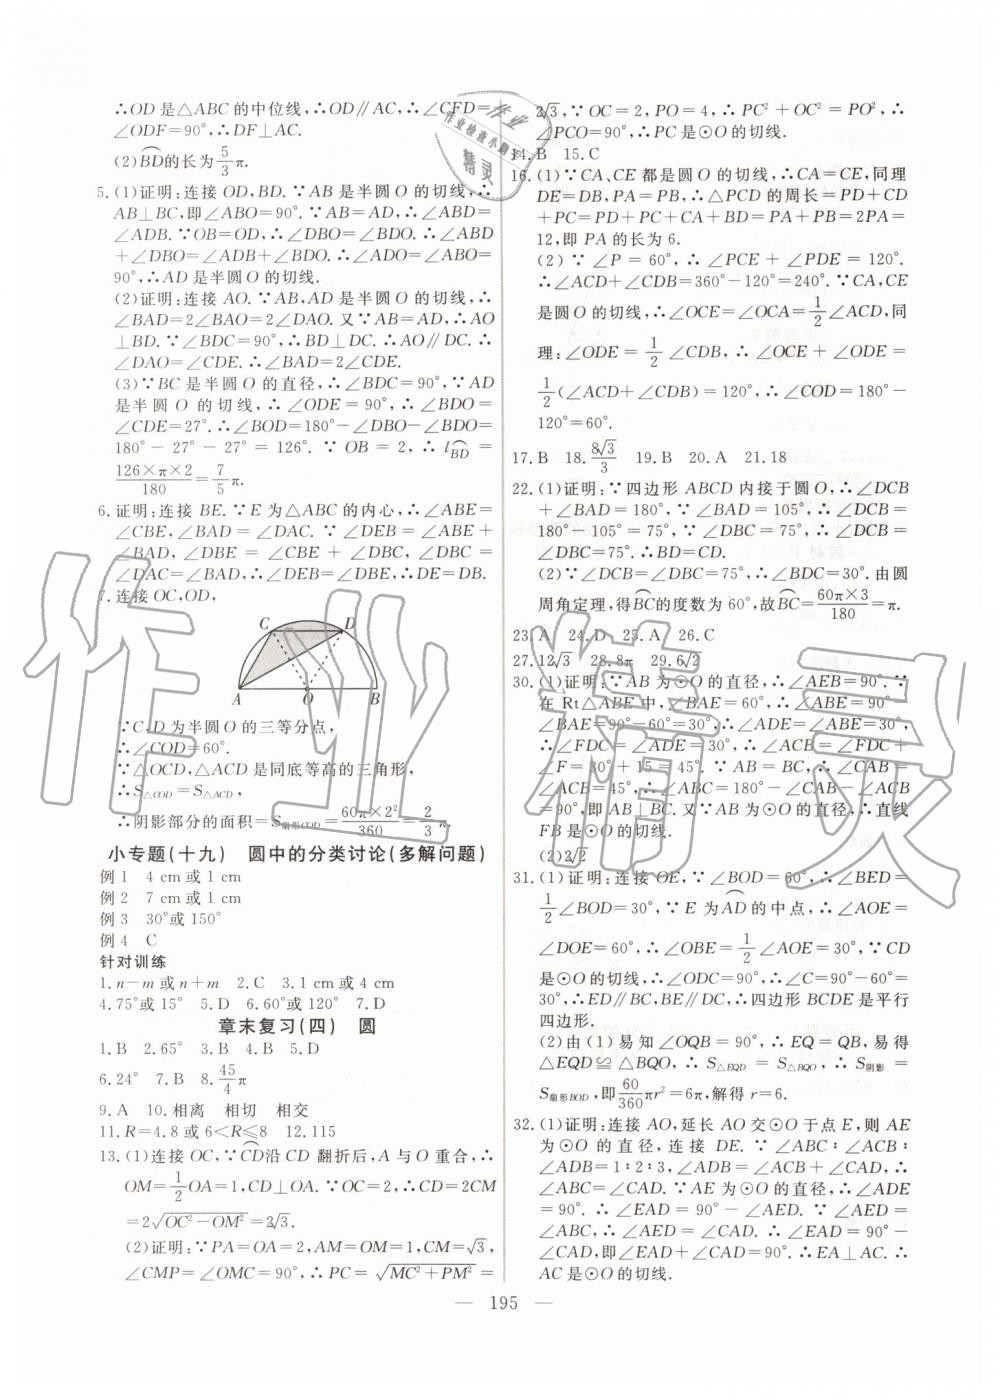 ∴OD是△ABC的中位线,∴OD∥AC,∴∠CFD=
∠ODF=90°,∴DF⊥AC.
(2)BD⌢的长为5/3π.
5.(1)证明:连接OD,BD.∵AB是半圆O的切线,∴
AB⊥BC,即∠ABO=90°.∵AB=AD,∴∠ABD=
∠ADB.∵OB=OD,∴∠DBO=∠BDO.∴∠ABD
+∠DBO=∠ADB+∠BDO.∴∠ADO=∠ABO=
90°,∴AD是半圆O的切线.
(2)证明:连接AO.∵AB,AD是半圆O的切线,∴
∠BAD=2∠BAO=2∠DAO.又∵AB=AD,∴AO
⊥BD.∵∠BDC=90°,∴BD⊥DC.∴AO∥DC.∴
∠DAO=∠CDE.∴∠BAD=2∠CDE.
(3)∵BC是半圆O的直径,∴∠BDC=90°,∵AD
是半圆O的切线.∴∠ODE=90°,∴∠BDO=
∠CDE=27°.∴∠BOD=180°-∠DBO-∠BDO=
180°-27°-27°=126°.∵OB=2,∴l BD⌢=
126×π×2/180=7/5π.
6.证明:连接BE.∵E为△ABC的内心,∴∠ABE=
∠CBE,∠BAD=∠DAC.∵∠DEB=∠ABE+
∠BAD,∠DBE=∠CBE+∠DBC,∠DBC=
∠DAC=∠BAD,∴∠DEB=∠DBE,∴DE=DB.
7.连接OC,OD,
C D
A O B
∵C,D为半圆O的三等分点,
∴∠COD=60°.
∵△OCD,△ACD是同底等高的三角形,
∴S△COD=S△ACD,
∴阴影部分的面积=S扇形COD=60π×2²/360=2/3π.
小专题(十九) 圆中的分类讨论(多解问题)
例1 4 cm或1 cm
例2 7 cm或1 cm
例3 30°或150°
例4 C
针对训练
1.n-m或n+m 2.C 3.1 cm或4 cm
4.75°或15° 5.D 6.60°或120° 7.D
章末复习(四) 圆
1.B 2.65° 3.B 4.B 5.D
6.24° 7.B 8.45/4π
9.A 10.相离 相切 相交
11.R=4.8或6<R≤8 12.115
13.(1)连接OC,∵CD⌢沿CD翻折后,A与O重合,∴
OM=1/2OA=1,CD⊥OA.∵OC=2,∴CD=2CM
=2√(OC²-OM²)=2√3.
(2)证明:∵PA=OA=2,AM=OM=1,CM=√3,∵
∠CMP=∠OMC=90°,∴PC=√(MC²+PM²)=
2√3,∵OC=2,PO=4,∴PC²+OC²=PO²,∴
∠PCO=90°,∴PC是⊙O的切线.
14.B 15.C
16.(1)∵CA、CE都是圆O的切线,∴CA=CE,同理
DE=DB,PA=PB,∴△PCD的周长=PD+CD
+PC=PD+PC+CA+BD=PA+PB=2PA=
12,即PA的长为6.
(2)∵∠P=60°,∴∠PCE+∠PDE=120°.
∴∠ACD+∠CDB=360°-120°=240°.∵CA,CE
是圆O的切线,∴∠OCE=∠OCA=1/2∠ACD,同
理:∠ODE=1/2∠CDB,∴∠OCE+∠ODE=
1/2(∠ACD+∠CDB)=120°,∴∠COD=180°-
120°=60°.
17.B 18.8√3/3 19.B 20.A 21.18
22.(1)证明:∵四边形ABCD内接于圆O,∴∠DCB
+∠BAD=180°,∵∠BAD=105°,∴∠DCB=
180°-105°=75°,∵∠DBC=75°,∴∠DCB=
∠DBC=75°.∴BD=CD.
(2)∵∠DCB=∠DBC=75°,∴∠BDC=30°.由圆
周角定理,得BC⌢的度数为60°,故BC⌢=60π×3/180=π.
23.A 24.D 25.A 26.C
27.12√3 28.8π 29.6√2
30.(1)证明:∵AB为⊙O的直径,∴∠AEB=90°.∵
在Rt△ABE中,∠BAE=60°,∴∠ABE=90°-
∠BAE=90°-60°=30°,∴∠ADE=∠ABE=30°.
∴∠FDC=∠ADE=30°,∴∠ACB=∠FDC+
∠F=30°+15°=45°.∵∠CAB=45°,∴∠CAB=
∠ACB=45°.∴∠ABC=180°-∠CAB-∠ACB
=90°,即AB⊥BF.∵AB为⊙O的直径,∴直线
FB是⊙O的切线.
(2)2√2
31.(1)证明:连接OE,∵∠BOD=60°,∴∠BED=
1/2∠BOD=30°,∵E为AD⌢的中点,∴∠AOE=
∠DOE=60°,∴∠OBE=1/2∠AOE=30°.∵CD
是⊙O的切线,∴∠ODC=90°,∴∠C=90°-60°=
30°,∴ED∥BC,BE∥DC,∴四边形BCDE是平行
四边形.
(2)由(1)易知∠OQB=90°,∴EQ=QB,易得
△EQD≌△BQO,∴S△EQD=S△BQO,∴S阴影=
S扇形BOD,即60/360πr²=6π,解得r=6.
32.(1)证明:连接AO,延长AO交⊙O于点E,则AE
为⊙O的直径,连接DE.∵∠ABC∶∠ACB∶
∠ADB=1∶2∶3,∠ADB=∠ACB+∠CAD,∴
∠ABC=∠CAD.∵AE为⊙O的直径,∴∠ADE
=90°.∴∠EAD=90°-∠AED.∵∠AED=
∠ABC,∴∠AED=∠CAD.∴∠EAD=90°-
∠CAD,即∠EAD+∠CAD=90°.∴EA⊥AC.∴
AC是⊙O的切线.
— 195 —
作业精灵
作业
作业检查小助手
精灵